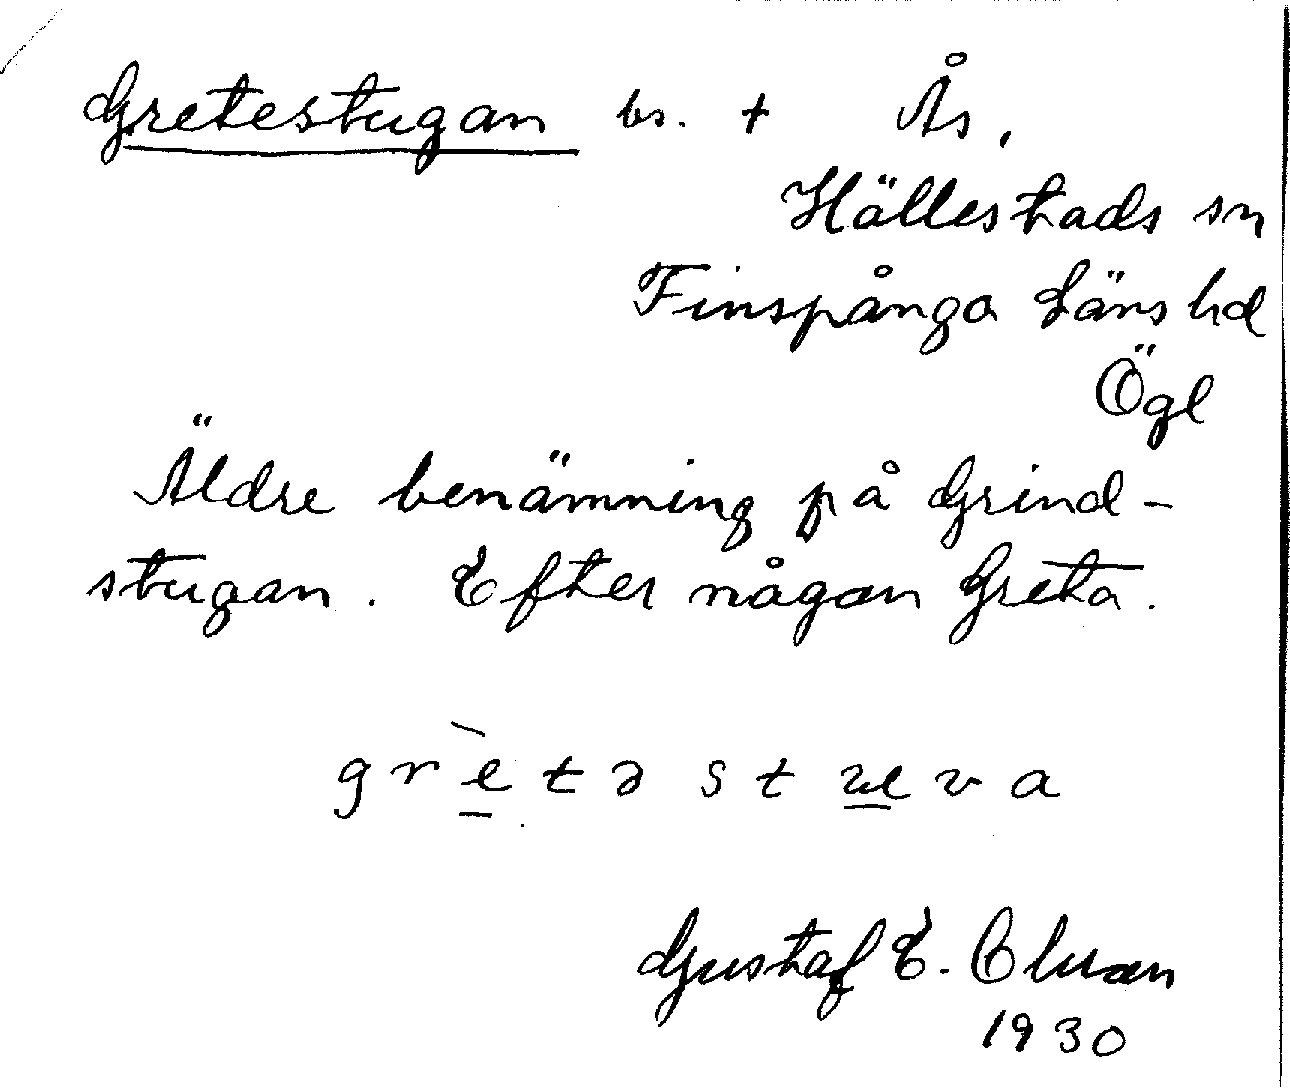 Gretestugan bs. + Ås,
Hällestads sn
Finspånga Läns hd
Ögl
Äldre benämning på Grind-
stugan. Efter någon Greta.
grètəstuva
Gustaf E.
1930